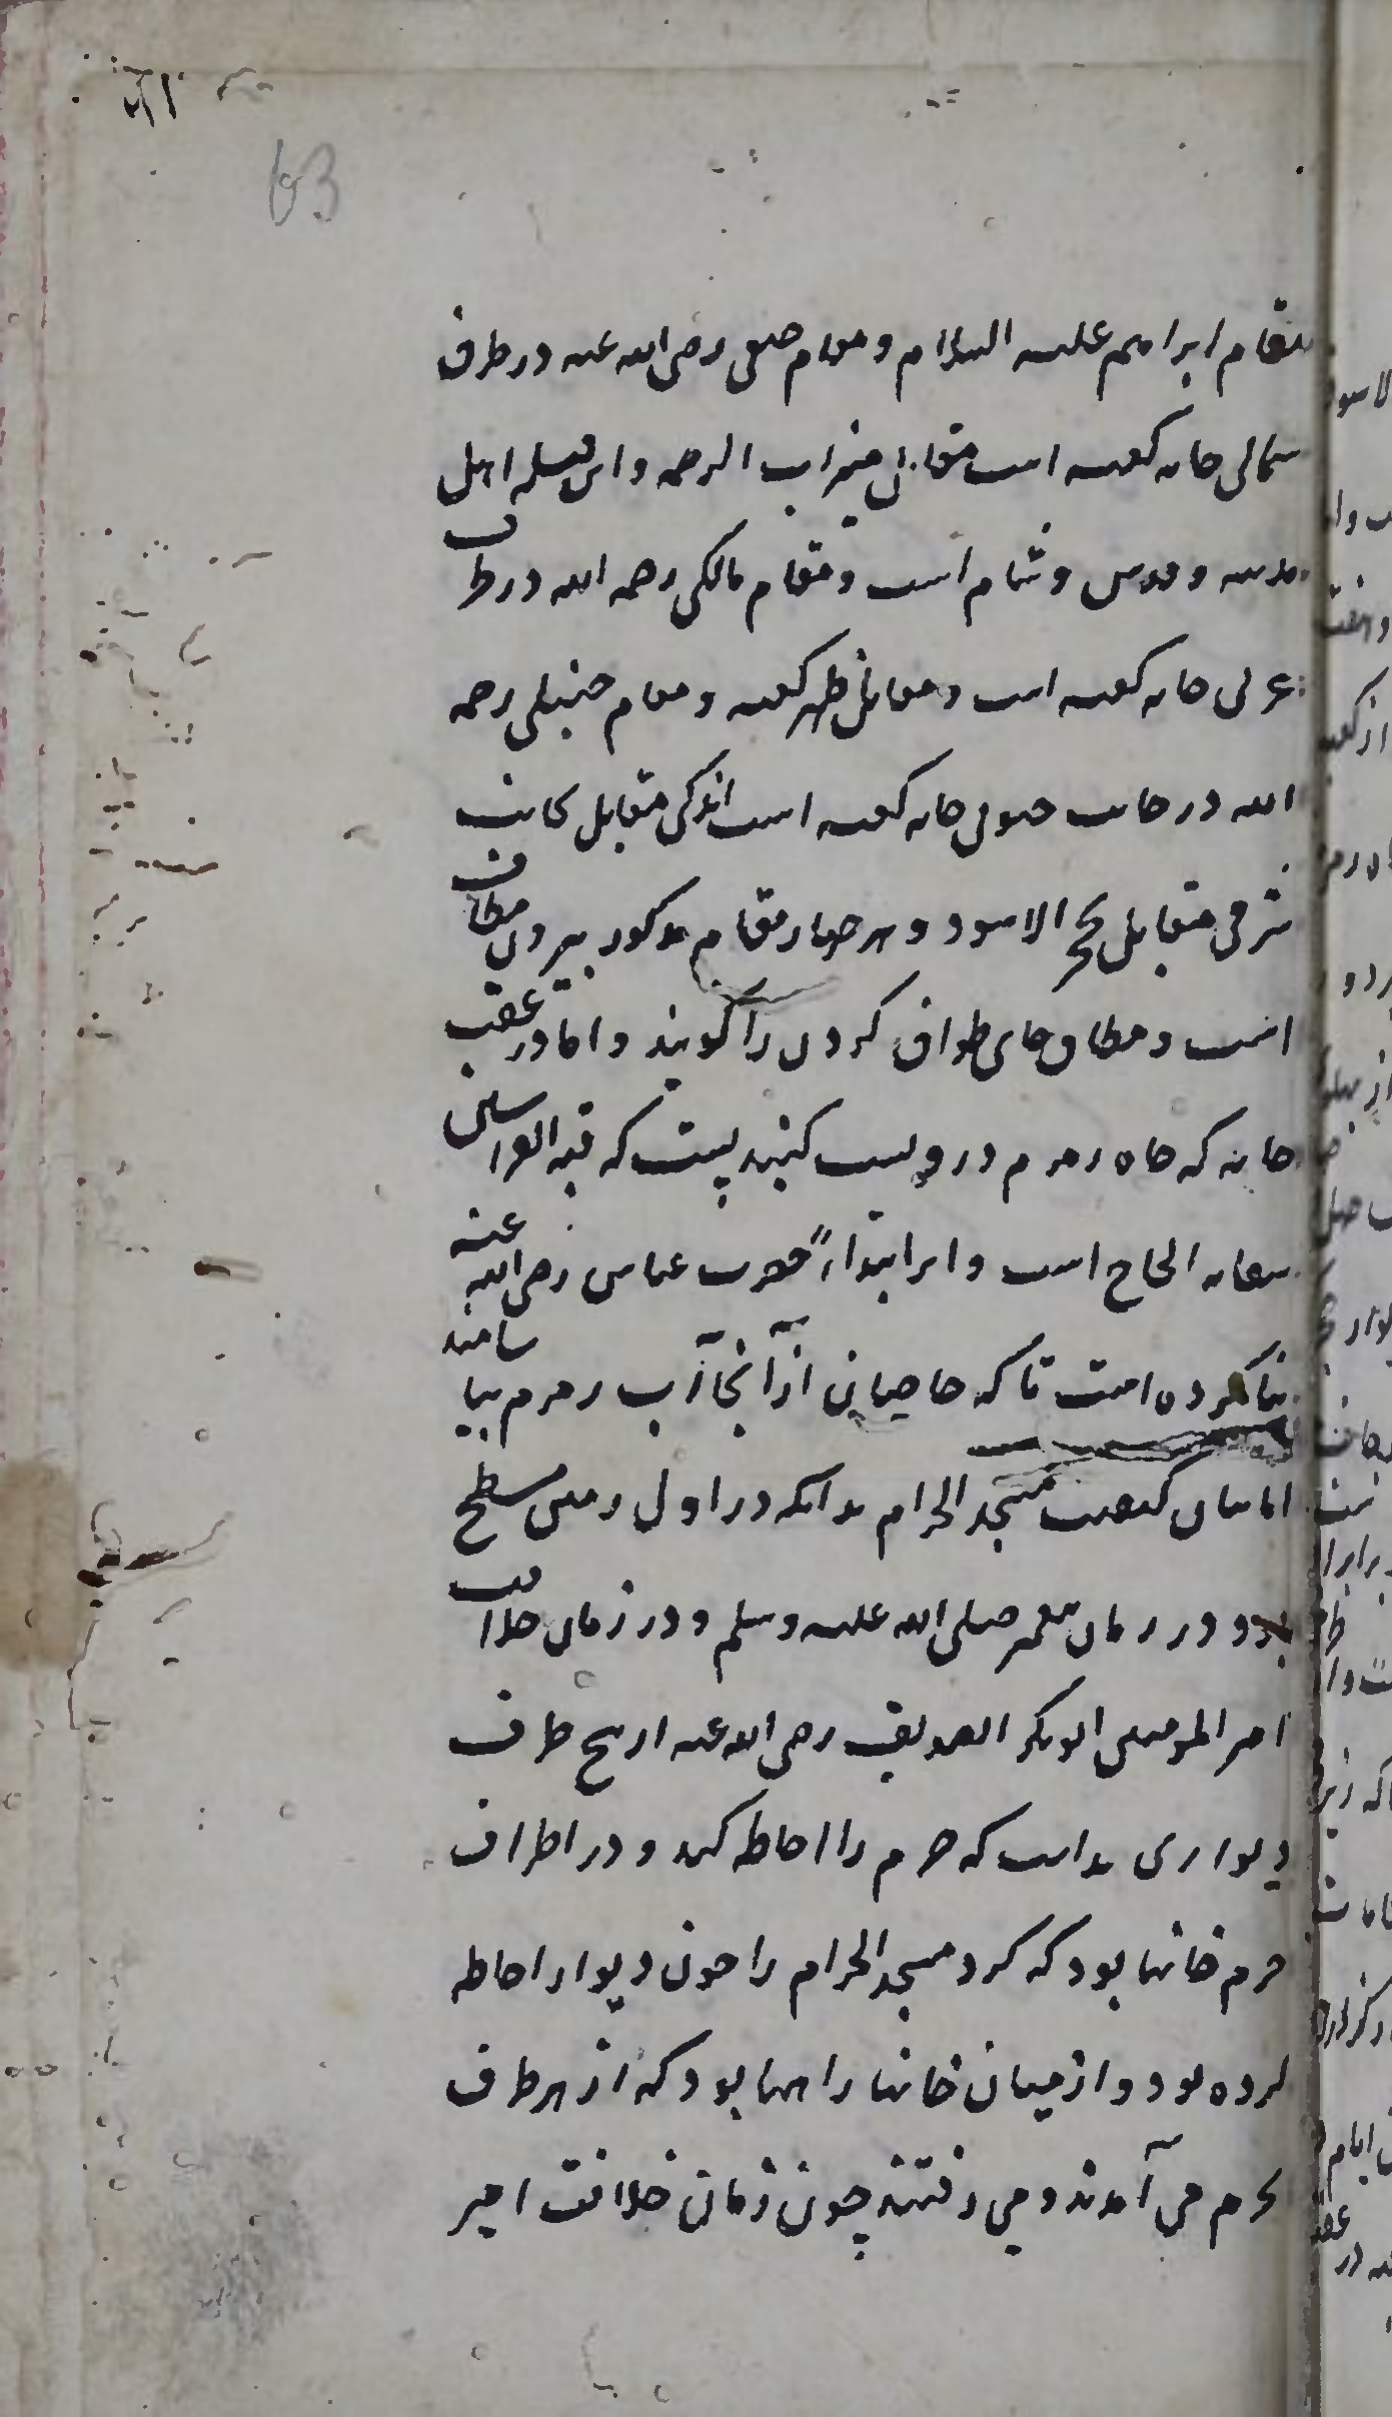 63
مقام ابراهیم علیه السلام و مقام حنفی رضی الله عنه در طرف
شمالی خانه کعبه است مقابل میزاب الرحمه و این قبله اهل
مدینه و قدس و شام است و مقام مالکی رحمه الله در طرف
غربی خانه کعبه است و مقابل ظهر کعبه و مقام حنبلی رحمه
الله در جانب جنوبی خانه کعبه است اندکی مقابل بجانب
شرقی مقابل بحجر الاسود و هر چهار مقام مذکور بیرون مطاف
است و مطاف جای طواف کردن را گویند و اما در عقب
خانه که چاه زمزم دروست گنبدیست که قبه الفراشین
سقایه الحاج است و این ابتداءً حضرت عباس رضی الله عنه
بنا کرده است تا که حاجیان از آنجا آب زمزم بیاشامند
اما بیان کیفیت مسجد الحرام بدانکه در اول زمین مسطح
بود و در زمان پیغمبر صلی الله علیه وسلم و در زمان خلافت
امیر المومنین ابوبکر الصدیق رضی الله عنه از هیچ طرف
دیواری نداشت که حرم را احاطه کند و در اطراف
حرم خانها بود که گرد مسجد الحرام را چون دیوار احاطه
کرده بود و از میان خانها راهها بود که از هر طرف
بحرم می آمدند و می رفتند چون زمان خلافت امیر